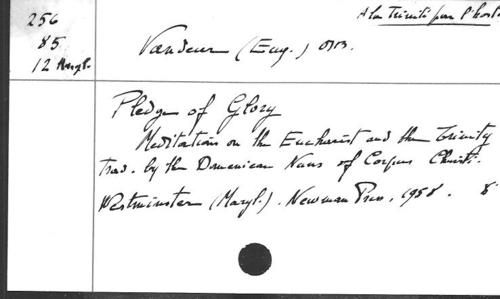 256
85
12 Angl.
A la Trinité par l'hostie
Vandeur (Eug.) OSB.
Pledge of Glory
Meditations on the Eucharist and the Trinity
trad. by the Dominican Nuns of Corpus Christi.
Westminster (Maryl.). Newman Press, 1958. 8°